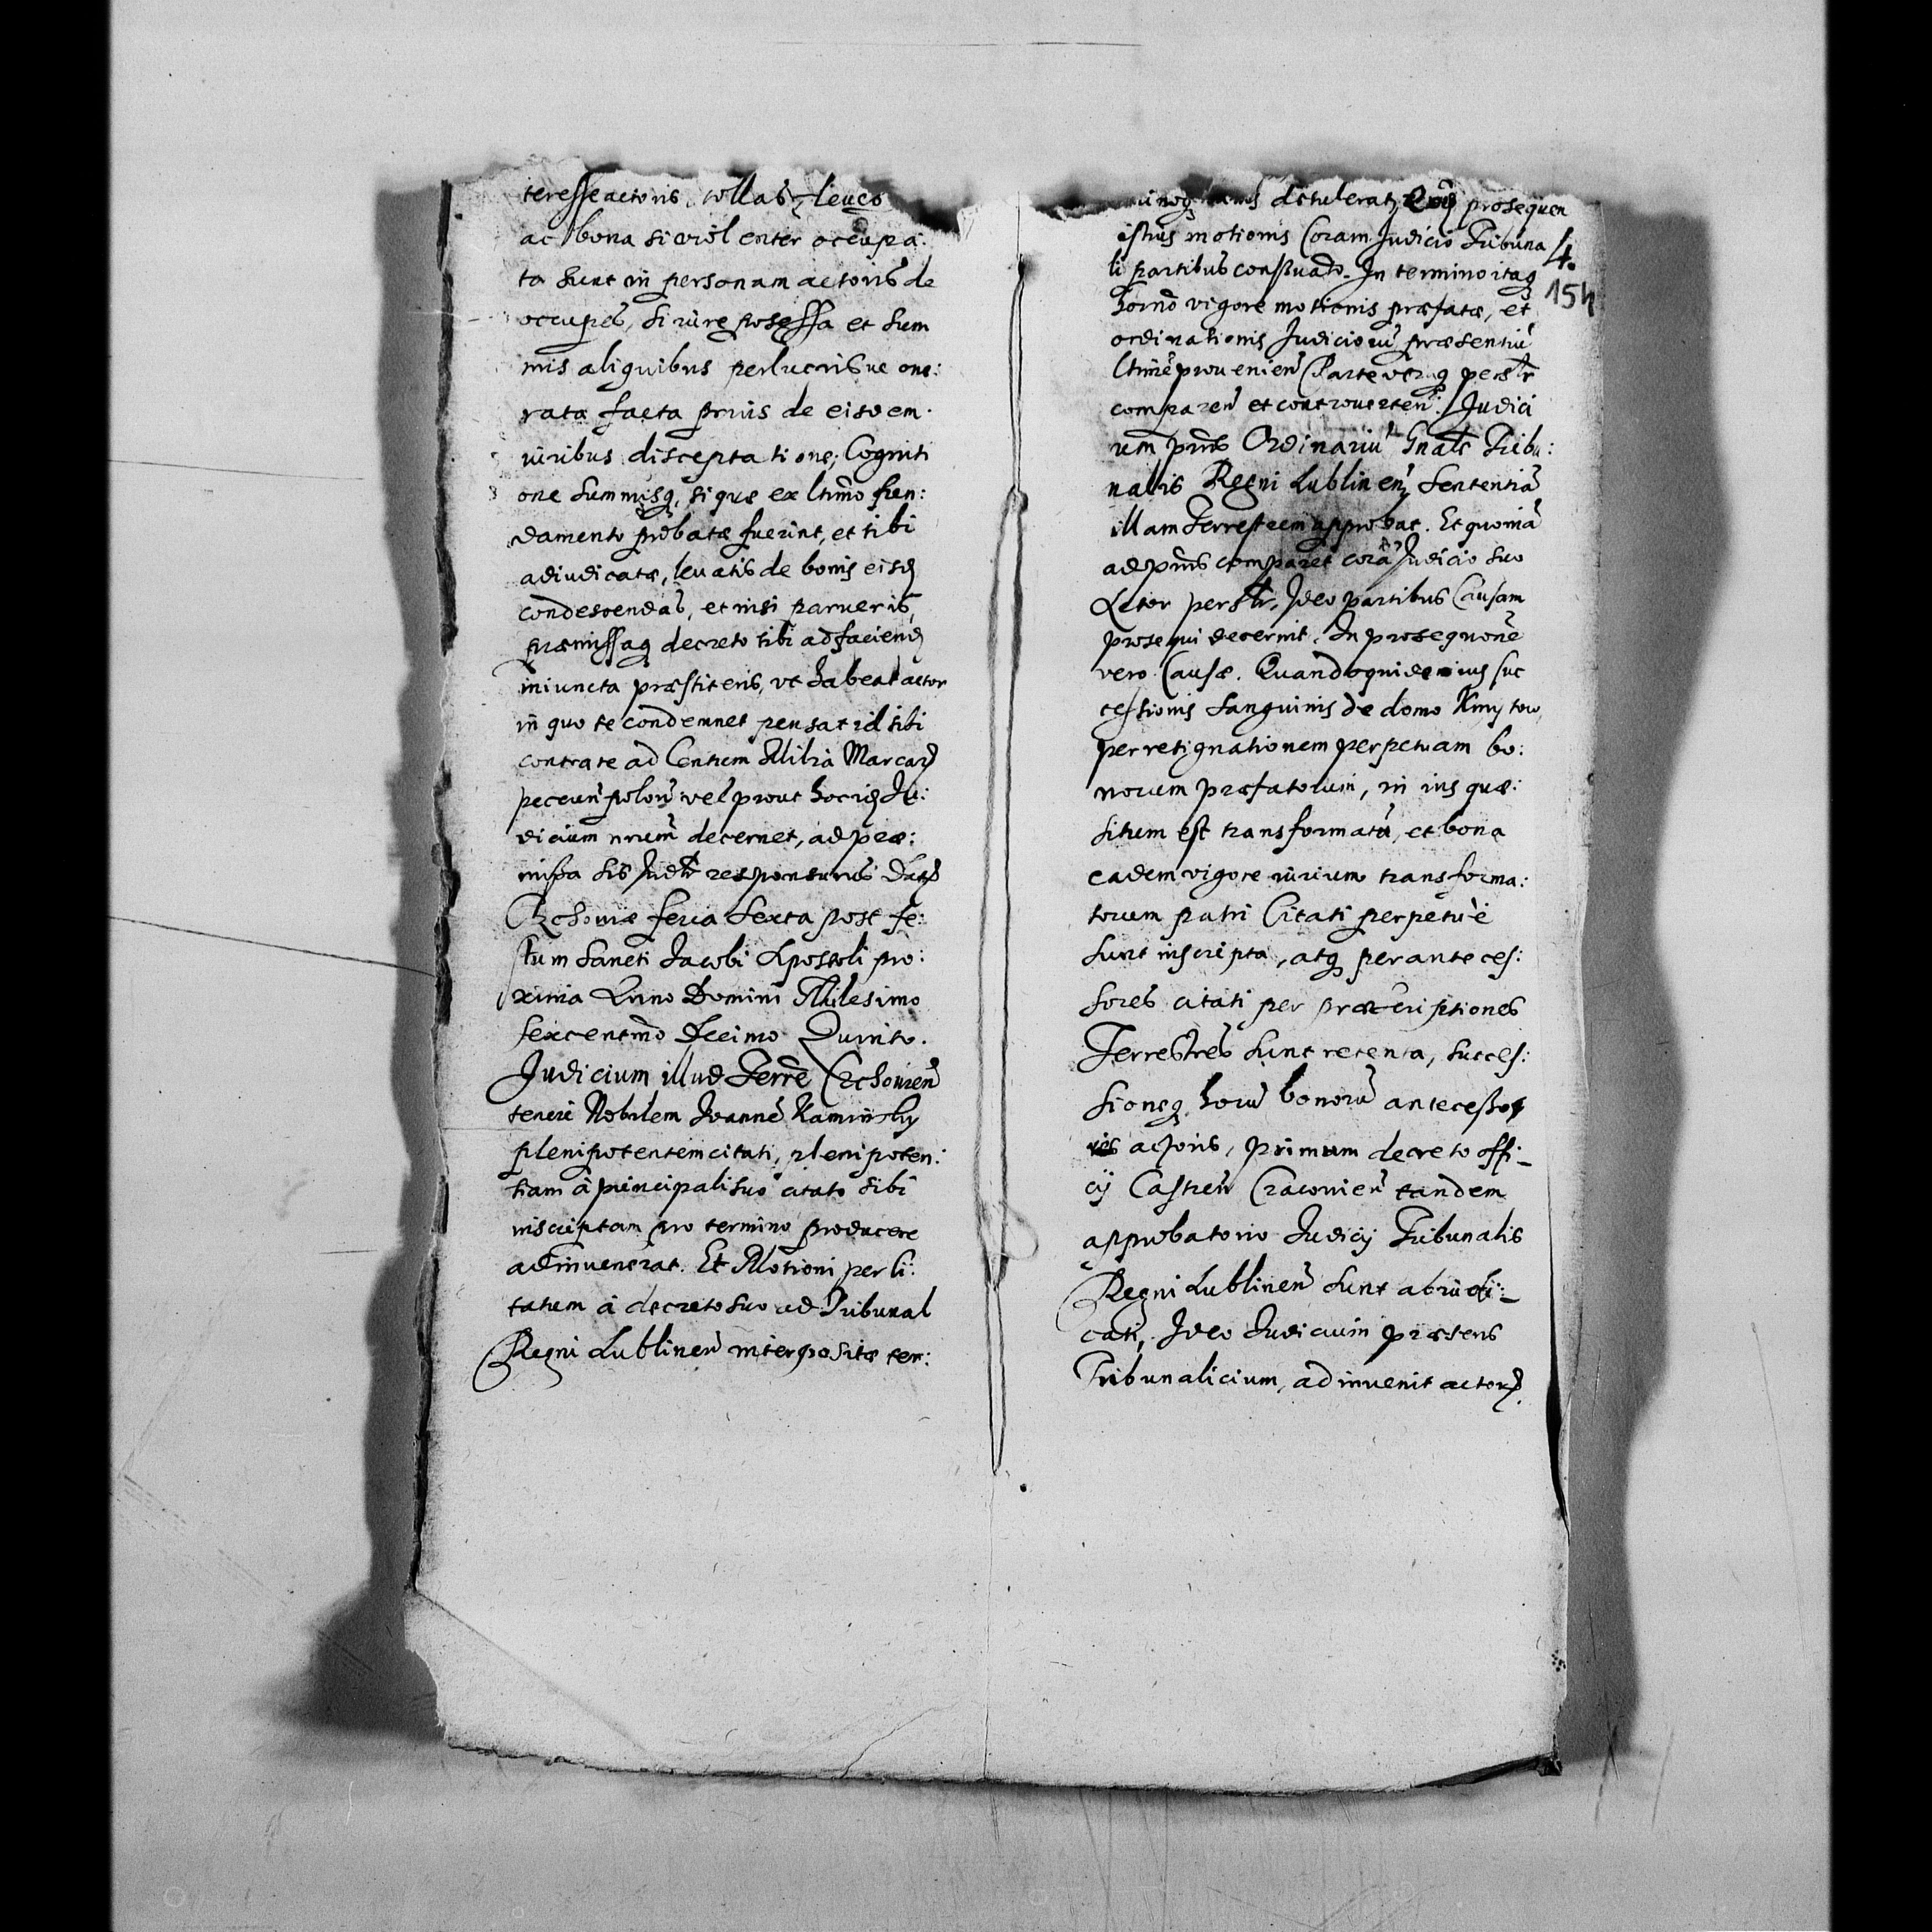 teresse actoris, tollas, leues
ac bona si violenter occupa:
ta sunt in personam actoris de
occupes, si iure possessa et sum
mis aliquibus perlucrisue one:
rata facta prius de eisdem
iuribus disceptatione, Cogniti
one summisq, si quæ ex ltimo fun:
damento probatæ fuerint, et tibi
adiudicatæ, leuatis de bonis eisd
condescendas, et nisi parueris,
præmissaq decreto tibi ad faciend
iniuncta præstiteris, vt habeat actor
in quo te condemnet pensat id sibi
contra te ad Centum Milia Marcar
pecun polon vel prout hocidq Ju:
dicium nrum decernet, ad præ:
missa sis Judr responsurus Dat
Czchouiæ feria sexta post fe:
stum Sancti Jacobi Apostoli pro:
xima Anno Domini Milesimo
sexcentmo Decimo Quinto.
Judicium illud Terre Czchouien
tenere Nobilem Joanne Kaminsky
plenipotentem citati, plenipoten:
tiam à principali suo citato sibi
inscriptam pro termino producere
adinuenerat. Et Motioni per Ci:
tatum à decreto suo ad Tribunal
Regni Lublinen interpositæ ter:
detulerat, prosequen
istius motionis Coram Judicio Tribuna
4.
li partibus conseruato. In termino itaq
154
horno vigore motionis præfatæ, et
ordinationis Judicioru præsentiu
ltime prouenien Parte vtraq persr
comparen et controuerten. Judici
um pnns Ordinariu Gnale Tribu:
nalis Regni Lublinen, sententia
illam Terrestrem approbat. Et quonia
ad pnns comparet cora Judicio suo
Actor persr, Ideo partibus Causam
prosequi decernit. In prosequone
vero Causæ. Quandoquidem ius suc
cessionis sanguinis de domo Kmytow,
per resignationem perpetuam bo:
norum præfatorum, in ius quæ:
situm est transformatu, et bona
eadem vigore iurium transforma:
torum patri Citati perpetuè
sunt inscripta, atq per anteces:
sores citati per præscriptiones
Terrestres sunt retenta, succes:
sioneq horu bonoru antecesso
ris actoris, primum decreto offi-
cij Castren Cracouien tandem
approbatorio Judicij Tribunalis
Regni Lublinen sunt abiudi:-
cati, Ideo Judicium præsens
Tribunalicium, adinuenit actor